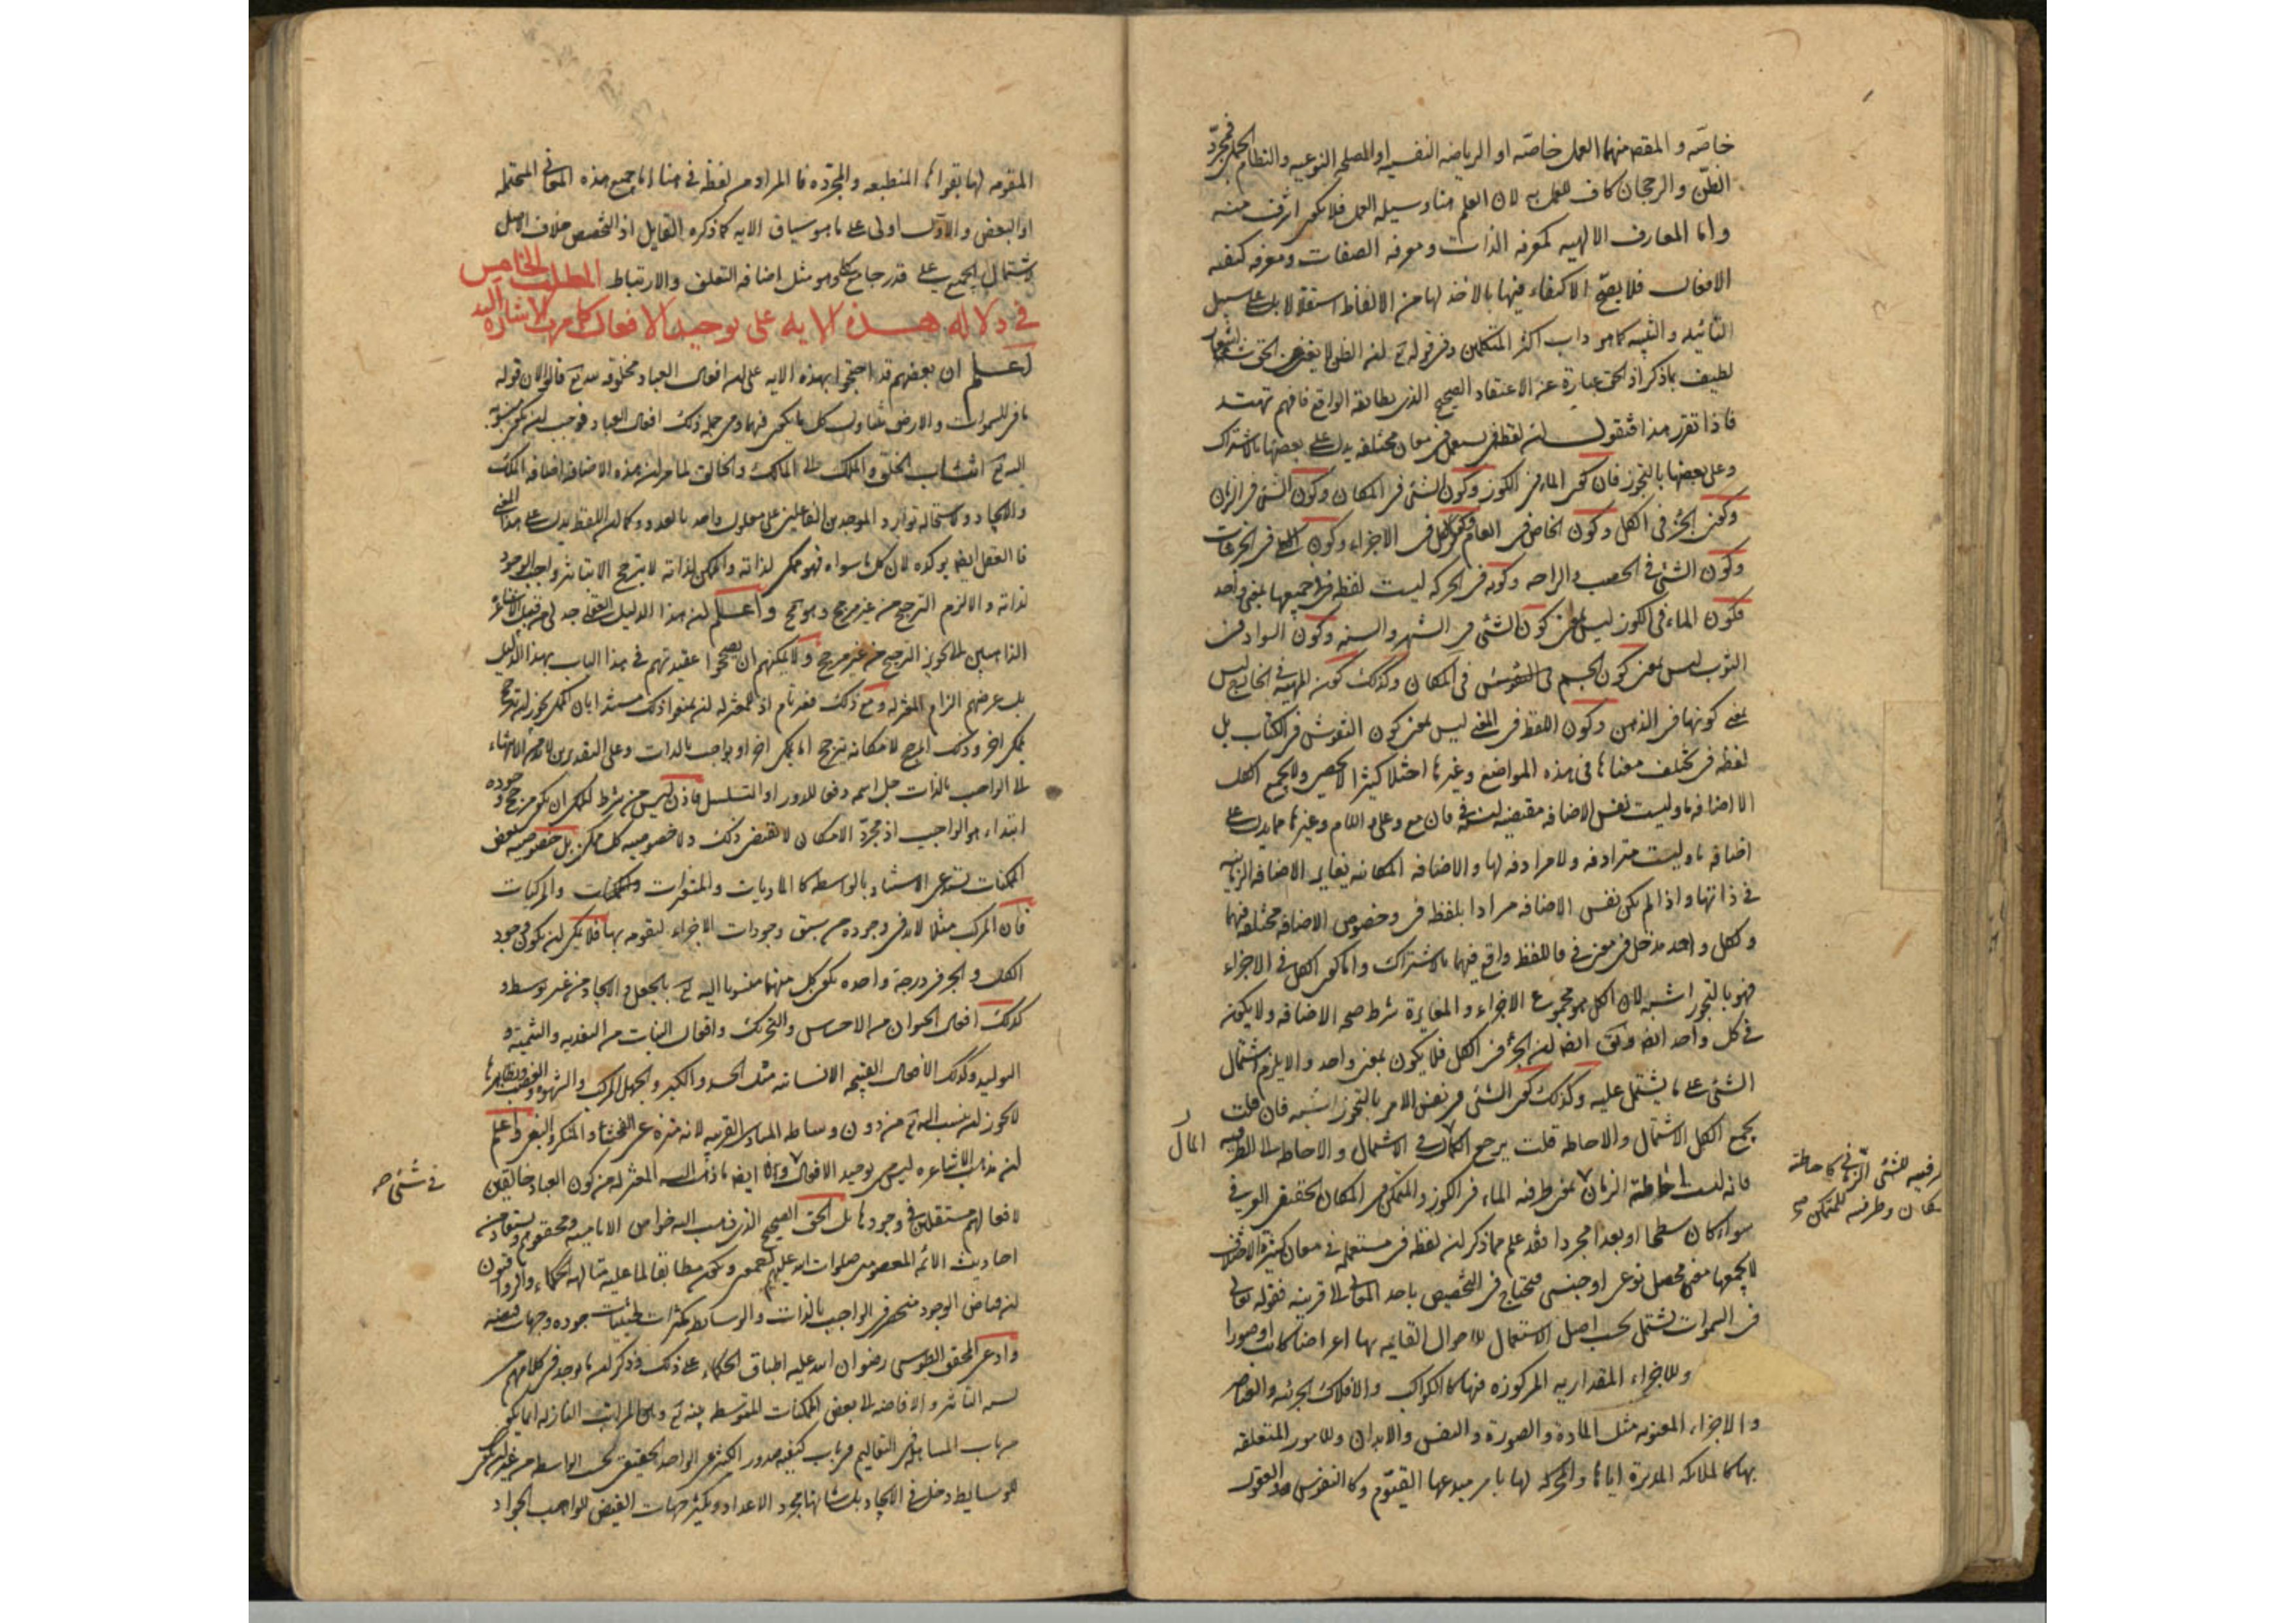 خاصه و المقصد منهما العمل خاصه او الرياضه النفسيه او المصلحه النوعيه والنظام الجملى فمجرد
الظن والرجحان كاف للعمل به لان العلم هنا وسيله العمل فلا يكون اشرف منه
و اما المعارف الالهيه كمعرفه الذات و معرفه الصفات و معرفه كيفيه
الافعال فلا يصح الاكتفاء فيها بالاخذ لها من الالفاظ استقلالا بل على سبيل
التائيد و التنبيه كما هو داب اكثر المتكلمين و فى قوله تع ان الظن لا يغنى من الحق شيئا اشعار
لطيف بما ذكر اذ الحق عبارة عن الاعتقاد الصحيح الذى يطابقه الواقع فافهم تهتد
فاذا تقرر هذا فنقول ان لفظ فى يستعمل فى معان مختلفه يدل على بعضها بالاشتراك
وعلى بعضها بالتجوز فان كون الماء فى الكوز وكون الشئ فى المكان وكون الشئ فى الزمان
وكون الجزء فى الكل وكون الخاص فى العام وكون الكل فى الاجزاء وكون الكلى فى الجزئيات
وكون الشئ فى الخصب والراحه وكونه فى الحركه ليست لفظه فى جميعها بمعنى واحد
فكون الماء فى الكوز ليس بمعنى كون الشئ فى الشهر والسنه وكون السواد فى
الثوب ليس بمعنى كون الجسم فى المكان وكذلك كون المهيه فى الخارج ليس
بمعنى كونها فى الذهن وكون اللفظ فى المعنى ليس بمعنى كون النقوش فى الكتاب بل
لفظه فى تختلف معناها فى هذه المواضع وغيرها اختلافا كثيرا لا يحصر ولا يجمع الكل
الا اضافه ما وليست نفس الاضافه مقتضيه لفى فان مع وعلى واللام وغيرها مما يدل على
اضافه ما وليست مترادفه ولا مرادفه لها والاضافه المكانيه تغاير الاضافه الزمانيه
فى ذاتها و اذا لم يكن نفس الاضافه مرادا بلفظه فى و خصوص الاضافه مختلفه فيها
و لكل واحد مدخل فى معنى فى فاللفظ واقع فيهما بالاشتراك واما كون الكل فى الاجزاء
فهو بالتجوز اشبه لان الكل هو مجموع الاجزاء و المغايرة شرط صحه الاضافه ولا يكون
فى كل واحد ايضا ان الجزء فى الكل فلا يكون بمعنى واحد والا يلزم اشتمال
الشئ على ما يشتمل عليه وكذلك كون الشئ فى نفس الامر بالتجوز اشبه فان قلت
يجمع الكل الاشتمال والاحاطه قلت يرجع الكلام فى الاشتمال والاحاطه الى الظرفيه
فانه ليست احاطه الزمان بمعنى ظرفيه الماء فى الكوز والمتمكن فى المكان الحقيقى
سواء كان سطحا او بعدا مجردا فقد علم مما ذكر ان لفظه فى مستعمله فى معان كثيرة الاختلاف
لا يجمعها معنى محصل نوعى او جنسى فيحتاج فى التخصيص باحد المعانى الى قرينه فقوله تعالى
فى السموات يشتمل بحسب اصل الاستعمال للاحوال القايمه بها اعراضا كانت او صورا
وللاجزاء المقداريه المركوزه فيها كالكواكب والافلاك الجزئيه والعناصر
و الاجزاء المعنويه مثل المادة والصورة والنفس والابدان وللامور المتعلقه
بها كالملائكه المدبرة اياها والمحركه لها بامر مبدعها القيوم وكالنفوس والعقول
المقومه لها بقواها المنطبعه والمجرده فالمراد من لفظه فى هنا اما جميع هذه المعانى المحتمله
او البعض والاول اولى على ما هو سياق الايه كما ذكره القايل اذ التخصص خلاف الاصل
لاشتمال الجميع على قدر جامع كلى هو مثل اضافه التعلق والارتباط المطلب الخامس
فى دلاله هذه الايه على توحيد الافعال كما مرت الاشارة اليه
اعلم ان بعضهم قد احتجوا بهذه الايه على ان افعال العباد مخلوقه لله تع قالوا لان قوله
ما فى السموات و الارض متناول كل ما يكون فيهما و من جمله ذلك افعال العباد فوجب ان يكون منسوبه
اليه تع انتساب الخلق والملك الى المالك والخالق لما مر ان هذه الاضافه اضافه الملك
والايجاد و لاستحاله توارد الموجدين الفاعلين على معلول واحد بالعدد وكما ان اللفظ يدل على هذا المعنى
فالعقل ايضا يوكده لان كل ما سواه فهو ممكن لذاته والممكن لذاته لا يترجح الا بتاثير واجب الوجود
لذاته والا لزم الترجيح من غير مرجح وهو مح واعلم ان هذا الدليل العقلى جدلى من قبل الاشاعره
الذاهبين الى تجويز الترجيح من غير مرجح ولا يمكنهم ان يصححوا عقيدتهم فى هذا الباب بهذا الدليل
بل غرضهم الزام المعتزله و مع ذلك فغير تام اذ للمعتزله ان يمنعوا ذلك مستندا بان الممكن يجوز ان يترجح
بممكن اخر وذلك المرجح لامكانه يترجح اما بممكن اخر او بواجب بالذات وعلى التقديرين لا بد من الانتهاء
الى الواجب بالذات جل اسمه دفعا للدور او التسلسل فاذن ليس من شرط الممكن ان يكون مرجح وجوده
ابتداء هو الواجب اذ مجرد الامكان لا يقتضى ذلك ولا خصوصيه كل ممكن بل خصوصيه بعض
الممكنات تستدعى الاستناد بالواسطه كالماديات والمتغيرات والمركبات
فان المركب مثلا لا بد فى وجوده من سبق وجودات الاجزاء ليقومه بها فلا يمكن ان يكون وجود
الكل والجزء فى درجة واحده يكون كل منهما منسوبا اليه تع بالجعل و الايجاد من غير توسط و
كذلك افعال الحيوان من الاحساس والتحريك وافعال النبات من التغذيه والتنميه و
التوليد وكذلك الافعال القبيحه الانسانيه مثل الحسد والكبر والجهل المركب والشهوة والغضب ونظايرها
لا يجوز ان ينسب اليه تع من دون وساطه المبادى القريبه لانه منزه عن الفحشاء والمنكر والبغى واعلم
ان مذهب الاشاعره ليس من توحيد الافعال ايضا ما ذهب اليه المعتزله من كون العباد خالقين
لافعالهم مستقلين فى وجودها بل الحق الصحيح الذى ذهب اليه خواص الاماميه ومحققوهم ويستفاد من
احاديث الائمه المعصومين صلوات الله عليهم اجمعين ويكون مطابقا لما عليه متالهه الحكماء والرواقيون
ان فياض الوجود منحصر فى الواجب بالذات والوسايط مكثرات لحيثيات جوده وجهات فيضه
وادعى المحقق الطوسى رضوان الله عليه اطباق الحكماء على ذلك وذكر ان ما يوجد فى كلامهم من
نسبه التاثير والافاضه الى بعض الممكنات المتوسطه بينه تع وبين المراتب النازله انما يكون
من باب المساهله فى التعاليم فى باب كيفيه صدور الكثير عن الواحد الحقيقى بحسب الواسطه من غير ان يكون
للوسايط دخل فى الايجاد بل شانها مجرد الاعداد و تكثير جهات الفيض للواجب الجواد
فى شئ صح